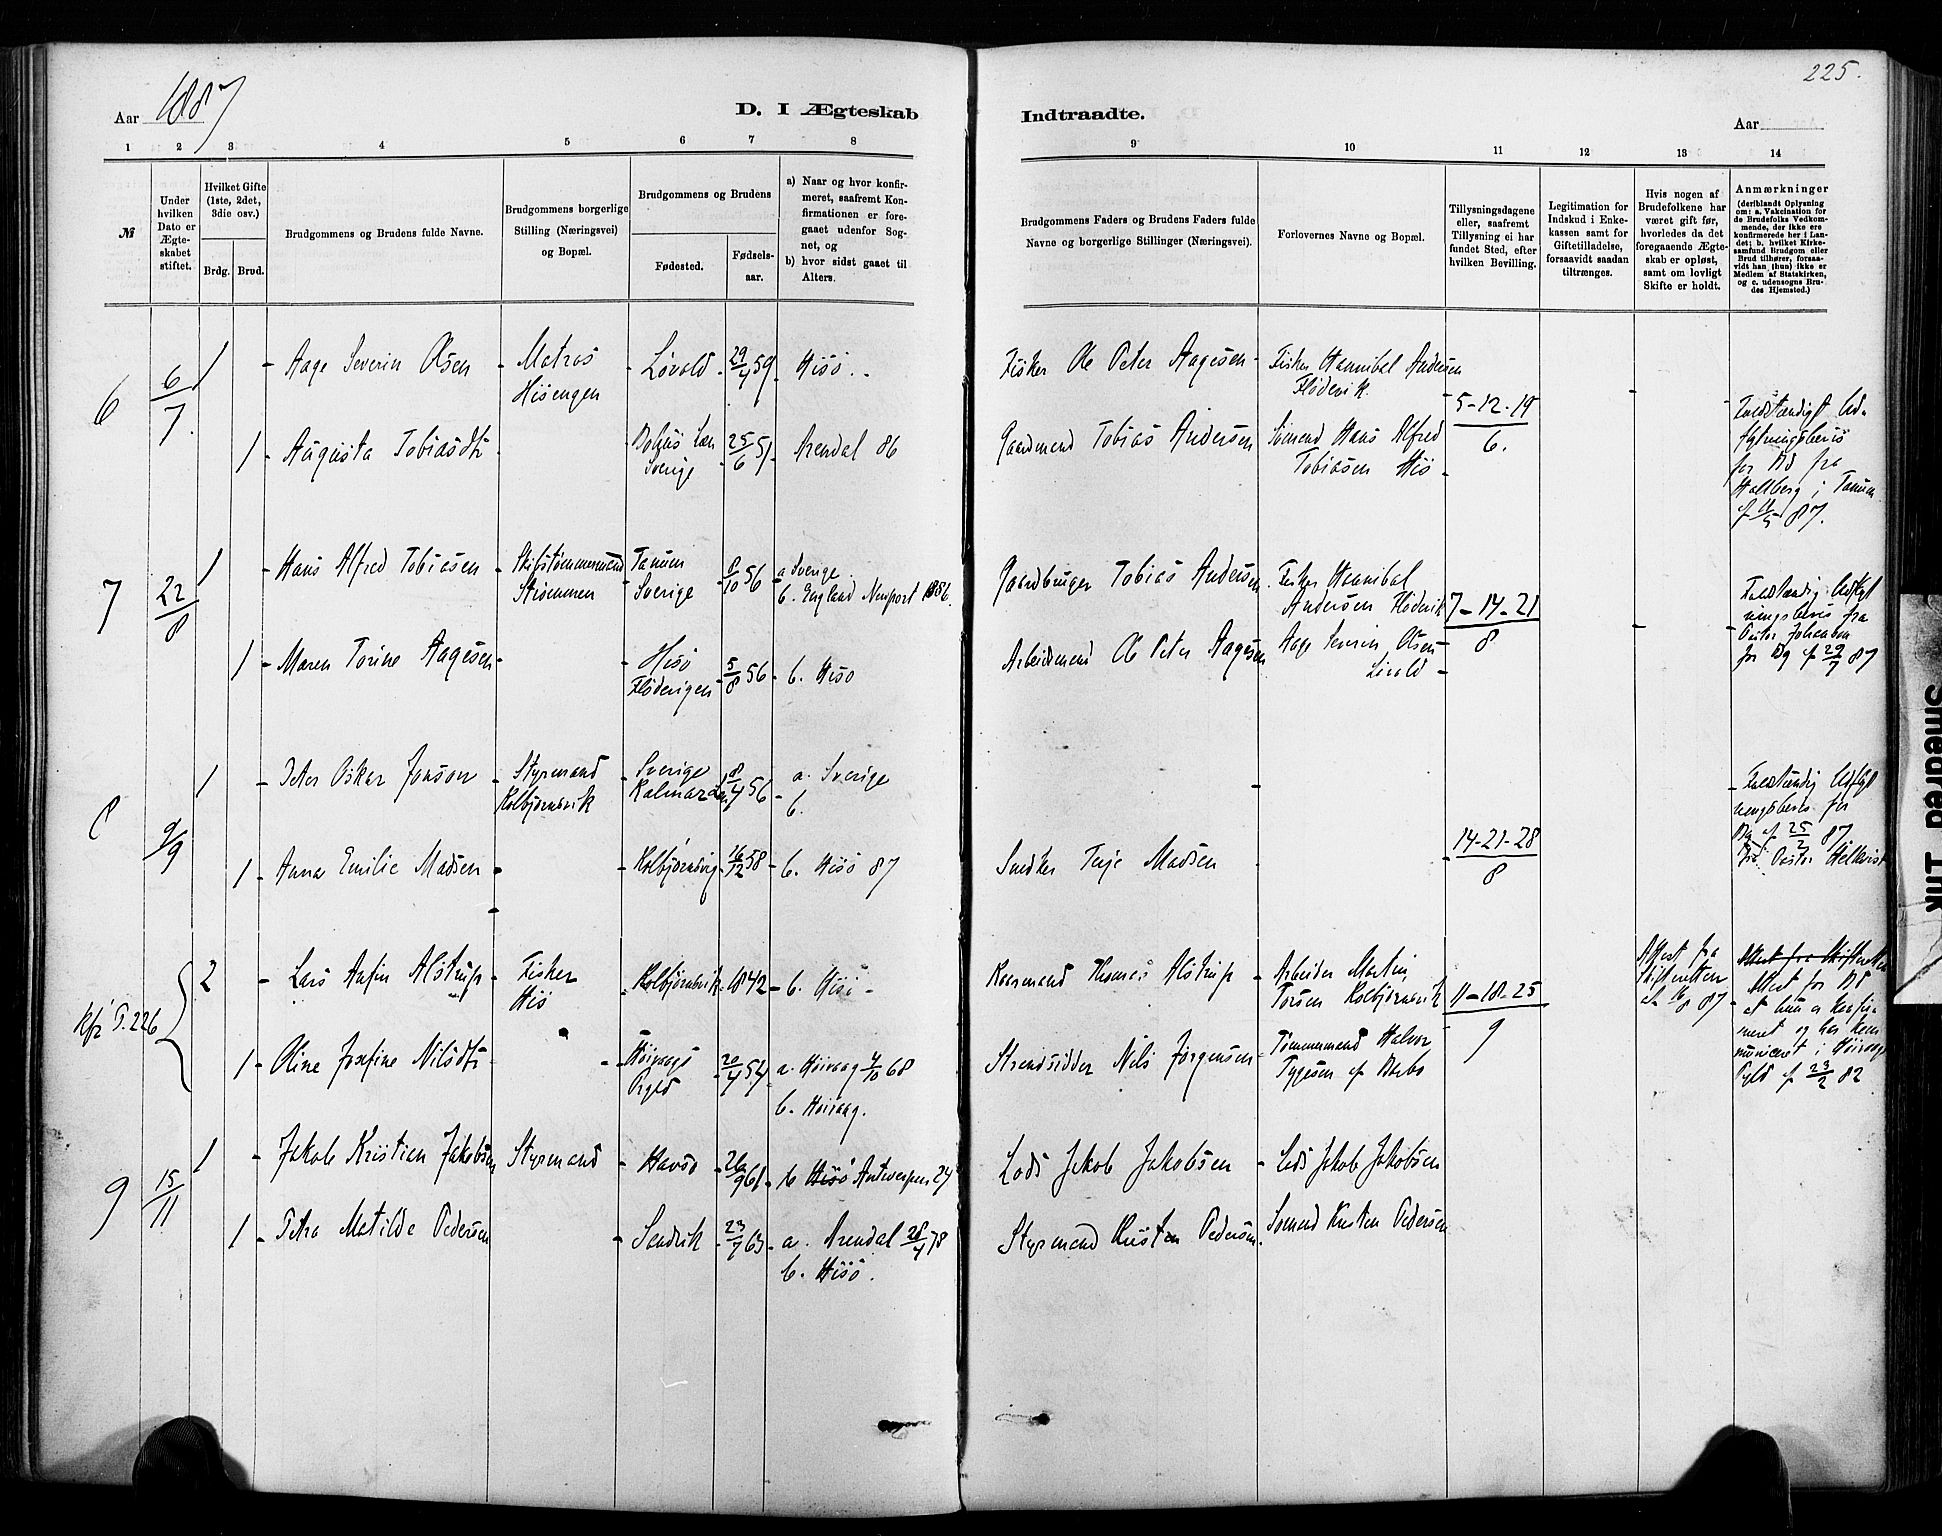 225.
Aar 1887
D. I Ægteskab Indtraadte.
Aar
1 2 3 4 5 6 7 8 9 10 11 12 13 14
№
Under hvilken Dato er Ægteskabet stiftet.
Hvilket Gifte (1ste, 2det, 3die osv.)
Brdg. Brud.
Brudgommens og Brudens fulde Navne.
Brudgommens borgerlige Stilling (Næringsvei) og Bopæl.
Brudgommens og Brudens
Fødested.
Fødselsaar.
a) Naar og hvor konfirmeret, saafremt Konfirmationen er foregaaet udenfor Sognet, og
b) hvor sidst gaaet til Alters.
Brudgommens Faders og Brudens Faders fulde Navne og borgerlige Stillinger (Næringsvei).
Forlovernes Navne og Bopæl.
Tillysningsdagene eller, saafremt Tillysning ei har fundet Sted, efter hvilken Bevilling.
Legitimation for Indskud i Enkekassen samt for Giftetilladelse, forsaavidt saadan tiltrænges.
Hvis nogen af Brudefolkene har været gift før, hvorledes da det foregaaende Ægteskab er opløst, samt om lovligt Skifte er holdt.
Anmærkninger (deriblandt Oplysning om: a. Vakcination for de Brudefolks Vedkommende, der ikke ere konfirmerede her i Landet; b. hvilket Kirkesamfund Brudgom eller Brud tilhører, forsaavidt han (hun) ikke er Medlem af Statskirken, og c. udensogns Brudes Hjemsted.)
6 6/7 1 - Aage Severin Olsen - Matros Hisöengen - Løvold - 29/4 59 - Hisö
Fisker Ole Peter Aagesen - Fisker Hannibal Andersen Flödevik
5-12-19/6.
1 - Augusta Tobiasdtr - Bohus Læn Sverige - 25/6 51 - Arendal 86
Gaardmand Tobias Andersen Sömand Hans Alfred Tobiasen His -
Fuldstændigt Udflytningsbevis for Bd fra Hallberg i Tanum
87.
7 22/8 1 - Hans Alfred Tobiasen - Skibstømmermand Strømmen - Tanum Sverige - 8/10 56 - a Sverige
b. England Newport 1886.
Gaardbruger Tobias Andersen - Fisker Hannibal Andersen Flödevik
7-14-21/8
Fuldstændig Udflytningsbevis fra Pastor Johansen for Bg af 29/7 87
1 - Maren Torine Aagesen - Hisö Flöderigen - 5/8 56 - b. Hisö
Arbeidsmand Ole Peter Aagesen Aage Severin Olsen - Lövold -
8 9/9 1 - Peter Oskar Jonson - Styrmand Kolbjørnsvik - Sverige Kalmar Len 8/4 56 - a. Sverige
b.
Fuldstændig Udflytningsbevis for Bg af 25/2 87
fra Pastor Helkvist
1 - Anna Emilie Madsen - Kolbjørnsvig - 16/12 58 - b. Hisö 87
Snedker Terje Madsen
14-21-28/8
Kfr P. 226 2 - Lars Anfin Alstrup - Fisker His - Kolbjørnsvik - 1842 - b. Hisö -
Thomas Alstrup - Arbeider Martin Torsen Kolbjørnsvik
11-18-25/9
Attest fra Skifteretten 87
Attest fra Skifteretten
Attest for Bd at hun er konfirmeret og har kommuniceret i Höivaag Pgld af 23/2 82
1 - Oline Josefine Nilsdtr - Höivaags Prgld - 20/4 54 - a. Höivaag 4/10 68
b. Höivaag.
Strandsidder Nils Jørgensen - Tømmermand Halvor Tygesen af Barbo
9 15/11 1 - Jakob Kristian Jakobsen Styrmand - Havsö - 26/9 61 - b Hisö Antwerpen 27
Lods Jakob Jakobsen - Lods Jakob Jakobsen
1 - Petra Matilde Pedersen - Sandvik - 23/7 63 - a. Arendal 28/4 78
b. Hisö.
Styrmand Kristen Pedersen. Sömand Kristen Pedersen
Smedred Ink